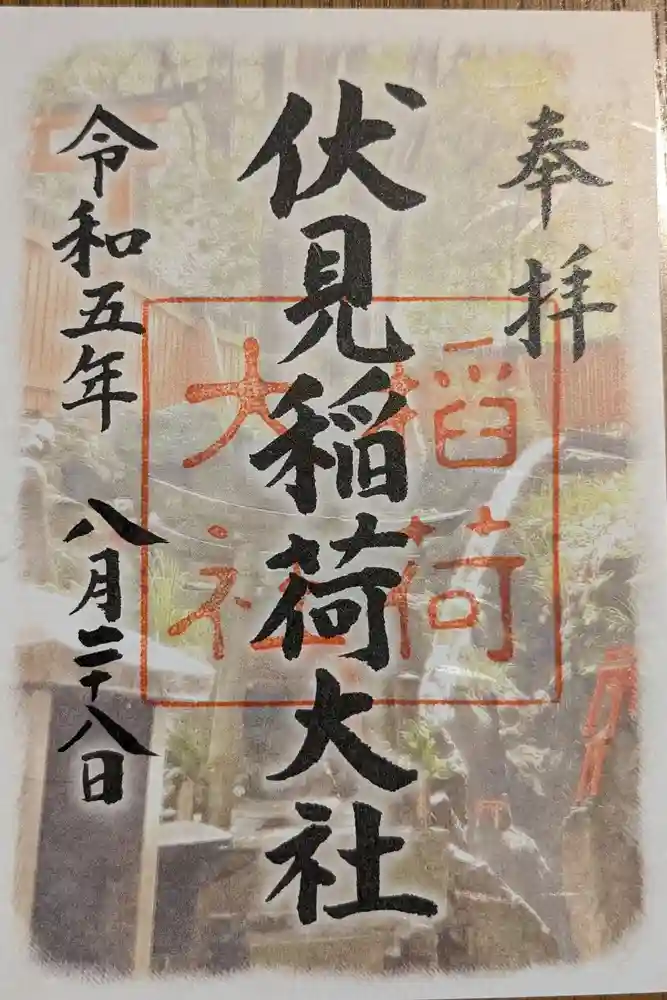 奉拝
伏見稲荷大社
稲荷
大社
令和五年 八月二十八日